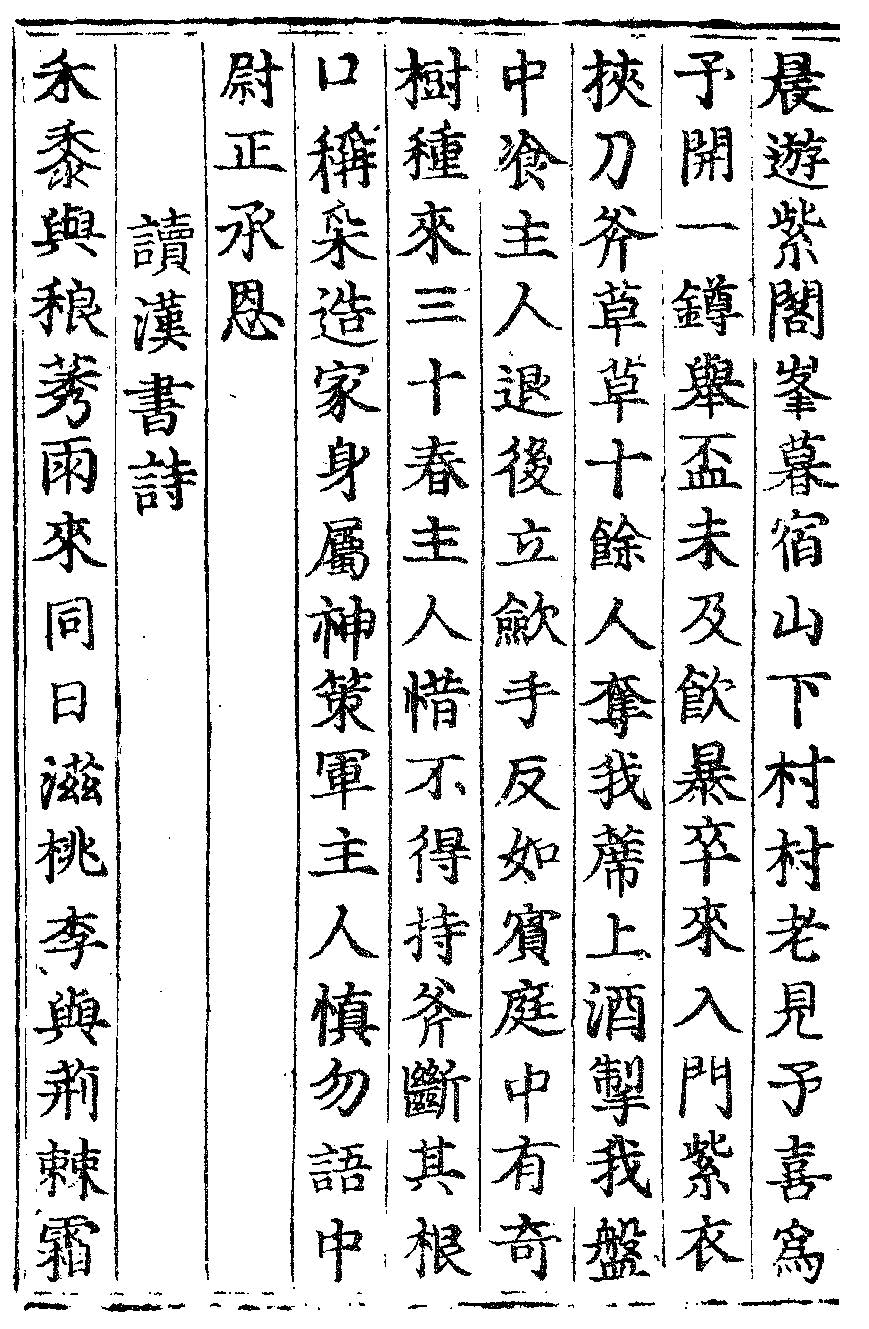 晨遊紫閣峯暮宿山下村村老見予喜爲
予開一鐏舉盃未及飲暴卒來入門紫衣
挾刀斧草草十餘人奪我蓆上酒掣我盤
中飡主人退後立歛手反如賔庭中有奇
樹種來三十春主人惜不得持斧斷其根
口稱采造家身屬神策軍主人慎勿語中
尉正承恩
讀漢書詩
禾黍與稂莠雨來同日滋桃李與荊棘霜